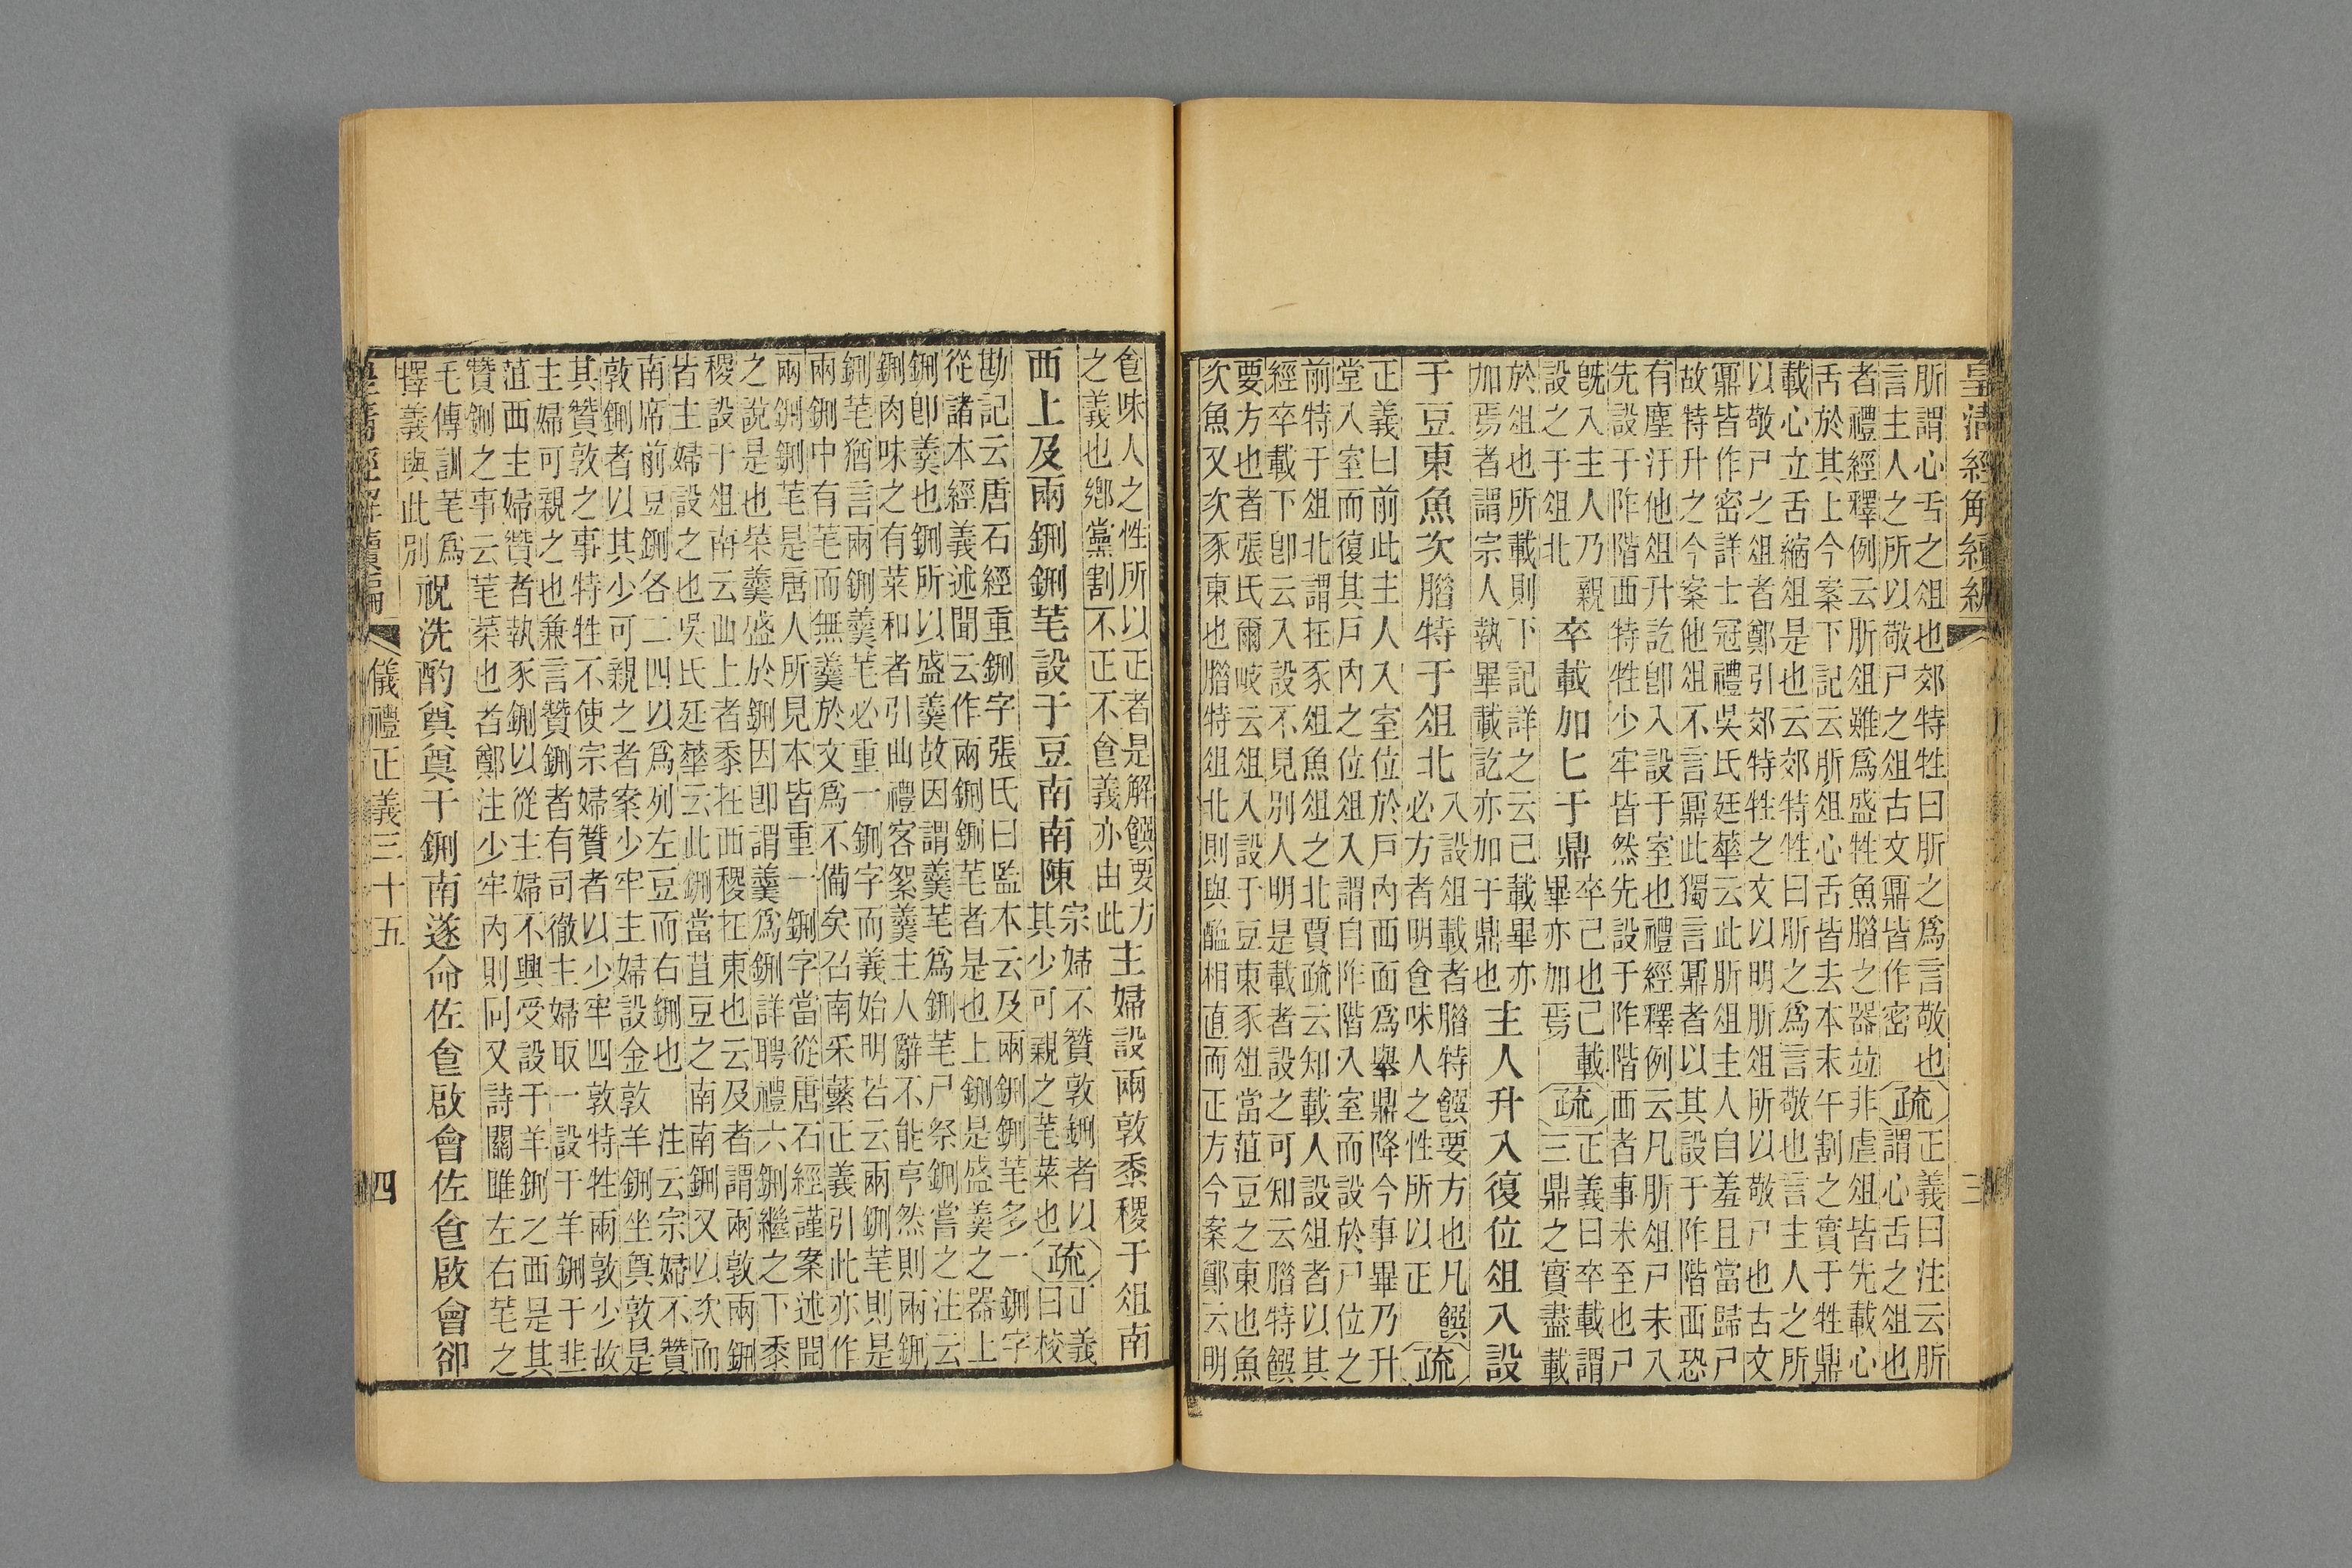 皇清經解續編 三
肵謂心舌之俎也郊特牲曰肵之爲言敬也
言主人之所以敬尸之俎古文鼏皆作密
疏
正義曰注云肵
謂心舌之俎也
者禮經釋例云肵俎雖爲盛牲魚腊之器竝非虐俎皆先載心
舌於其上今案下記云肵俎心舌皆去本末午割之實于牲鼎
載心立舌縮俎是也云郊特牲曰肵之爲言敬也言主人之所
以敬尸之俎者鄭引郊特牲之文以明肵俎所以敬尸也古文
鼏皆作密詳士冠禮吳氏廷華云此肵俎主人自羞且當歸尸
故特升之今案他俎不言鼏此獨言鼏者以其設于阼階西恐
有塵汙他俎升訖卽入設于室也禮經釋例云凡肵俎尸未入
先設于阼階西特牲少牢皆然先設于阼階西者事未至也尸
旣入主人乃親
設之于俎北
卒載加匕于鼎
卒已也已載
畢亦加焉
疏
正義曰卒載謂
三鼎之實盡載
於俎也所載則下記詳之云已載畢亦
加焉者謂宗人執畢載訖亦加于鼎也
主人升入復位俎入設
于豆東魚次腊特于俎北
入設俎載者腊特饌要方也凡饌
必方者明食味人之性所以正
疏
正義曰前此主人入室位於戶內西面爲舉鼎降今事畢乃升
堂入室而復其戶內之位俎入謂自阼階入室而設於尸位之
前特于俎北謂在豕俎魚俎之北賈疏云知載人設俎者以其
經卒載下卽云入設不見別人明是載者設之可知云腊特饌
要方也者張氏爾岐云俎入設于豆東豕俎當菹豆之東也魚
次魚又次豕東也腊特俎北則與醢相直而正方今案鄭云明
食味人之性所以正者是解饌要方
之義也鄉黨割不正不食義亦由此
主婦設兩敦黍稷于俎南
西上及兩鉶鉶芼設于豆南南陳
宗婦不贊敦鉶者以
其少可親之芼菜也
疏
正義
曰校
勘記云唐石經重鉶字張氏曰監本云及兩鉶鉶芼多一鉶字
從諸本經義述聞云作兩鉶鉶芼者是也上鉶是盛羹之器上
鉶卽羹也鉶所以盛羹故因謂羹芼爲鉶芼尸祭鉶嘗之注云
鉶肉味之有菜和者引曲禮客絮羹主人辭不能亨然則兩鉶
鉶芼猶言兩鉶羹芼必重一鉶字而義始明若云兩鉶芼則是
兩鉶中有芼而無羹於文爲不備矣召南采蘩正義引此亦作
兩鉶鉶芼是唐人所見本皆重一鉶字當從唐石經謹案述聞
之說是也菜羹盛於鉶因卽謂羹爲鉶詳聘禮六鉶繼之下黍
稷設于俎南云西上者黍在西稷在東也云及者謂兩敦兩鉶
皆主婦設之也吳氏廷華云此鉶當菹豆之南南鉶又以次而
南席前豆鉶各二四以爲列左豆而右鉶也注云宗婦不贊
敦鉶者以其少可親之者案少牢主婦設金敦羊鉶坐奠敦是
其贊敦之事特牲不使宗婦贊者以少牢四敦特牲兩敦少故
主婦可親之也兼言贊鉶者有司徹主婦取一設于羊鉶于韭
菹西主婦贊者執豕鉶以從主婦不興受設于羊鉶之西是其
贊鉶之事云芼菜也者鄭注少牢內則同又詩關雎左右芼之
毛傳訓芼爲
擇義與此別
祝洗酌奠奠于鉶南遂命佐食啟會佐食啟會卻
皇清經解續編 儀禮正義三十五 四